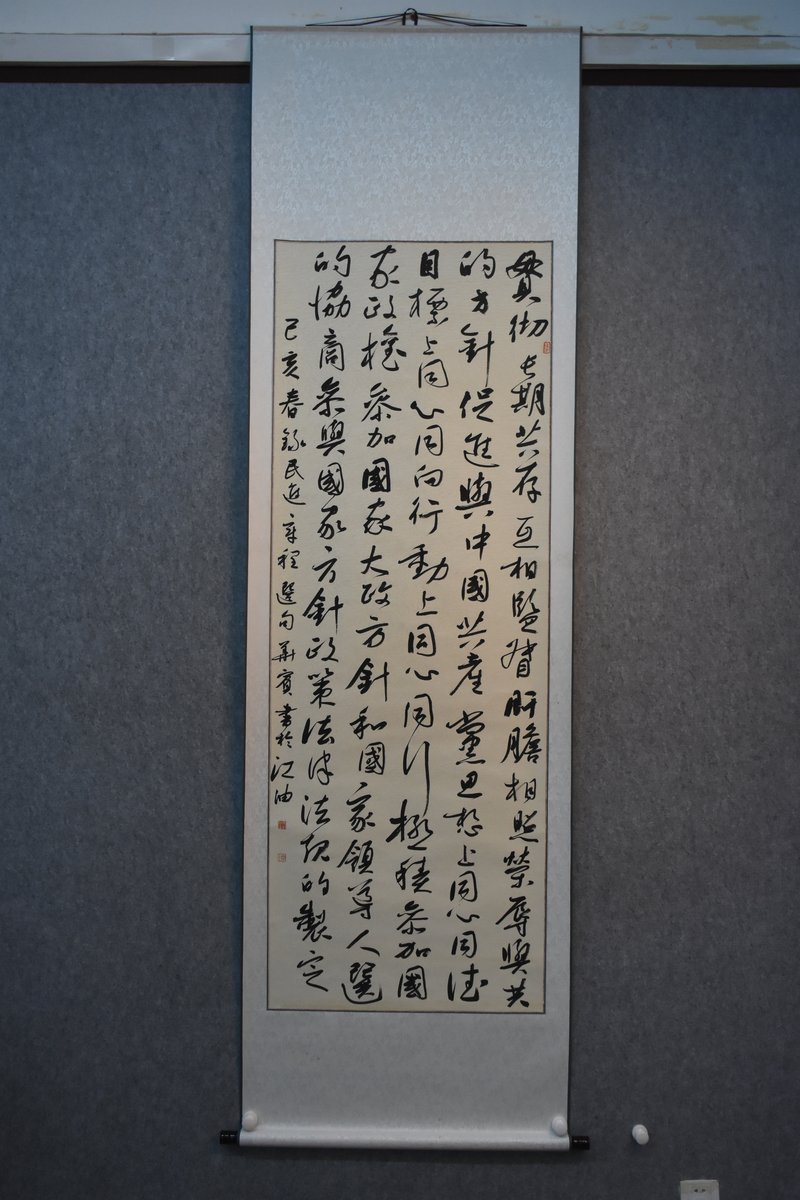 貫彻长期共存互相監督肝膽相照榮辱與共
的方針促進與中國共產黨思想上同心同德
目標上同心同向行動上同心同行極積參加國
家政權參加國家大政方針和國家領導人選
的協商參與國家方針政策法律法規的製定
己亥春錄民進章程選句華賓書於江油